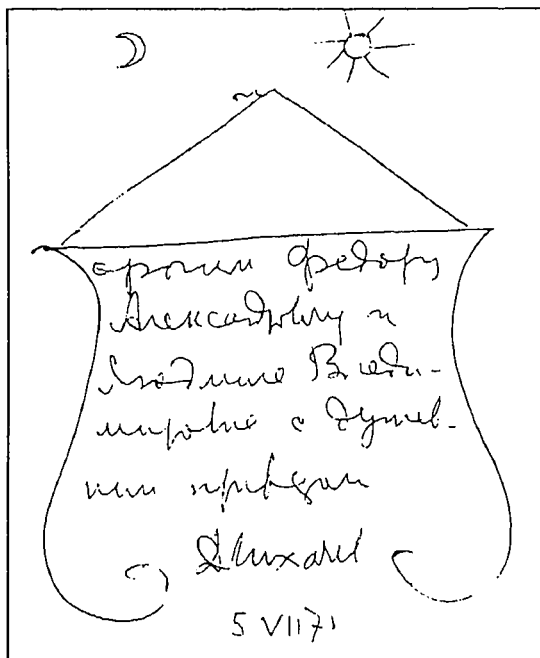 дорогим Федору
Александровичу и
Людмиле Влади-
мировне с душев-
ным приветом
Д Лихачев
5 VII 71